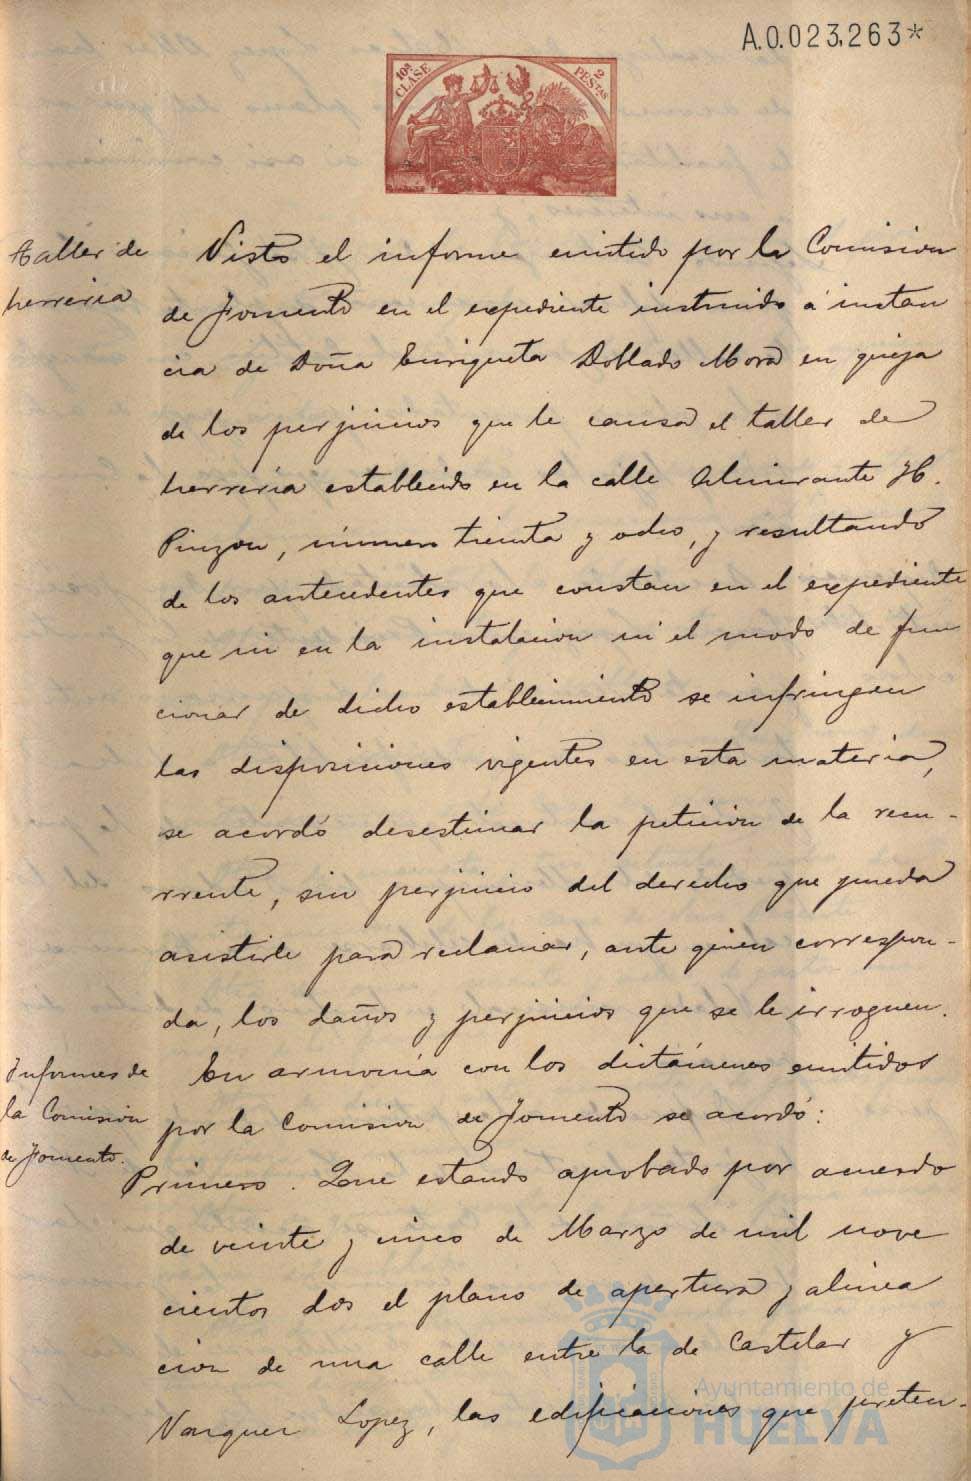 A.0.023,263*
10ª CLASE
2 PESTAS
taller de
herreria
Visto el informe emitido por la Comision
de Fomento en el expediente instruido á instan
cia de Doña Enriqueta Doblado Mora en queja
de los perjuicios que le causa el taller de
herreria establecido en la calle Almirante H.
Pinzon, número treinta y ocho, y resultando
de los antecedentes que constan en el expediente
que ni en la instalacion ni el modo de fun
cionar de dicho establecimiento se infringen
las disposiciones vigentes en esta materia,
se acordó desestimar la peticion de la recu-
rrente, sin perjuicio del derecho que pueda
asistirle para reclamar, ante quien correspon-
da, los daños y perjuicios que se le irroguen.
Informes de
la Comision
de Fomento.
En armonía con los dictámenes emitidos
por la Comision de Fomento se acordó:
Primero. Que estando aprobado por acuerdo
de veinte y cinco de Marzo de mil nove
cientos dos el plano de apertura y alinea
cion de una calle entre la de Castelar y
Vazquez Lopez, las edificaciones que preten-
Ayuntamiento de
HUELVA